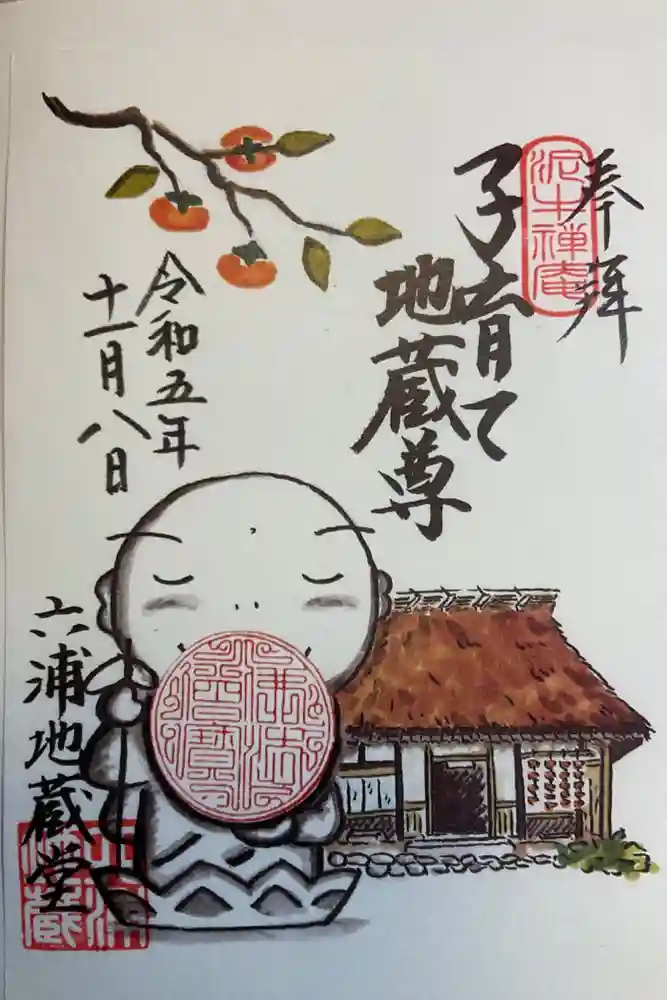 奉拝
泥牛禅庵
子育て
地蔵尊
令和五年
十一月八日
六浦地蔵堂
佛法僧寶